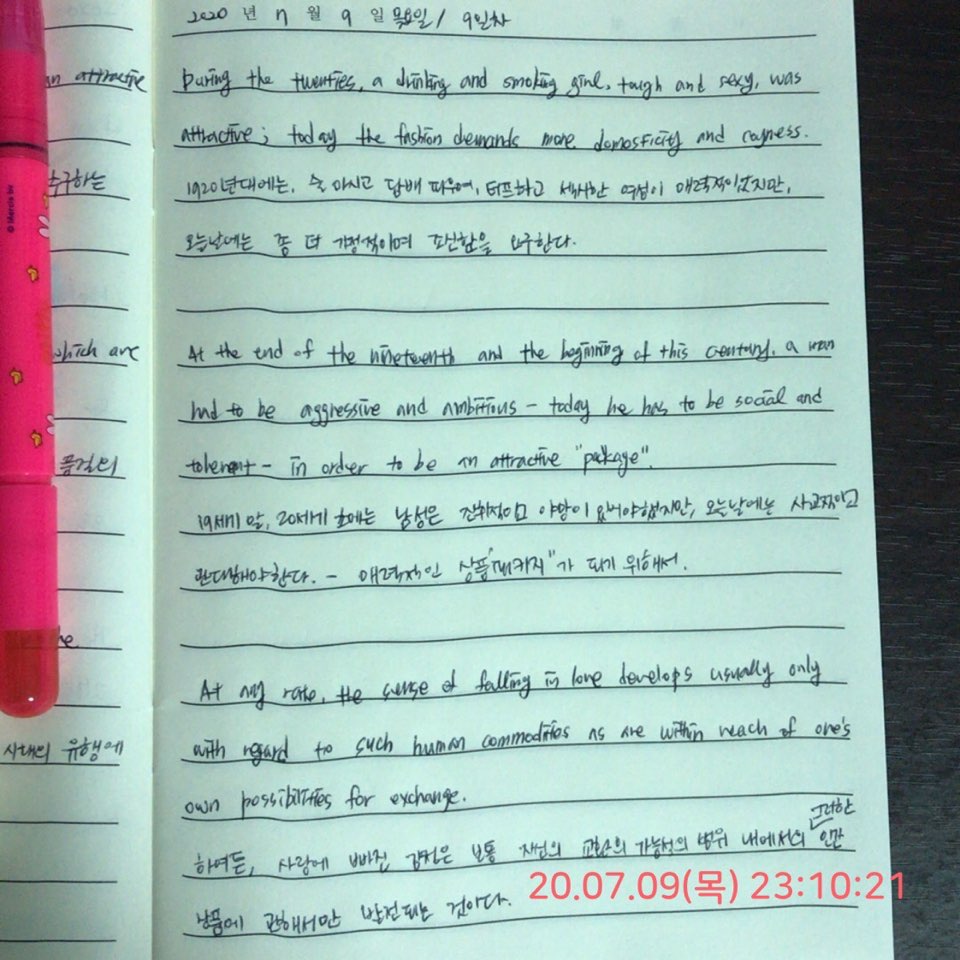 2020 년 7 월 9 일 목요일 / 9일차
an attractive
During the twenties, a drinking and smoking girl, tough and sexy, was
attractive; today the fashion demands more domosticity and coyness.
추구하는
1920년대에는, 술 마시고 담배 피우며, 터프하고 섹시한 여성이 매력적이었지만,
오늘날에는 좀 더 가정적이며 조신함을 요구한다.
which are
At the end of the nineteenth and the beginning of this century, a man
had to be aggressive and ambitious - today he has to be social and
품질의
tolerant - in order to be an attractive "package".
19세기 말, 20세기 초에는 남성은 진취적이고 야망이 있어야했지만, 오늘날에는 사교적이고
관대해야한다. - 매력적인 상품"패키지"가 되기 위해서.
he
At any rate, the sense of falling in love develops usually only
with regard to such human commodities as are within reach of one's
시대의 유행에
own possibilities for exchange.
그러한
하여튼, 사랑에 빠진 감정은 보통 자신의 교환의 가능성의 범위 내에서의 인간
상품에 관해서만 발전되는 것이다.
20.07.09(목) 23:10:21
© Mercis bv